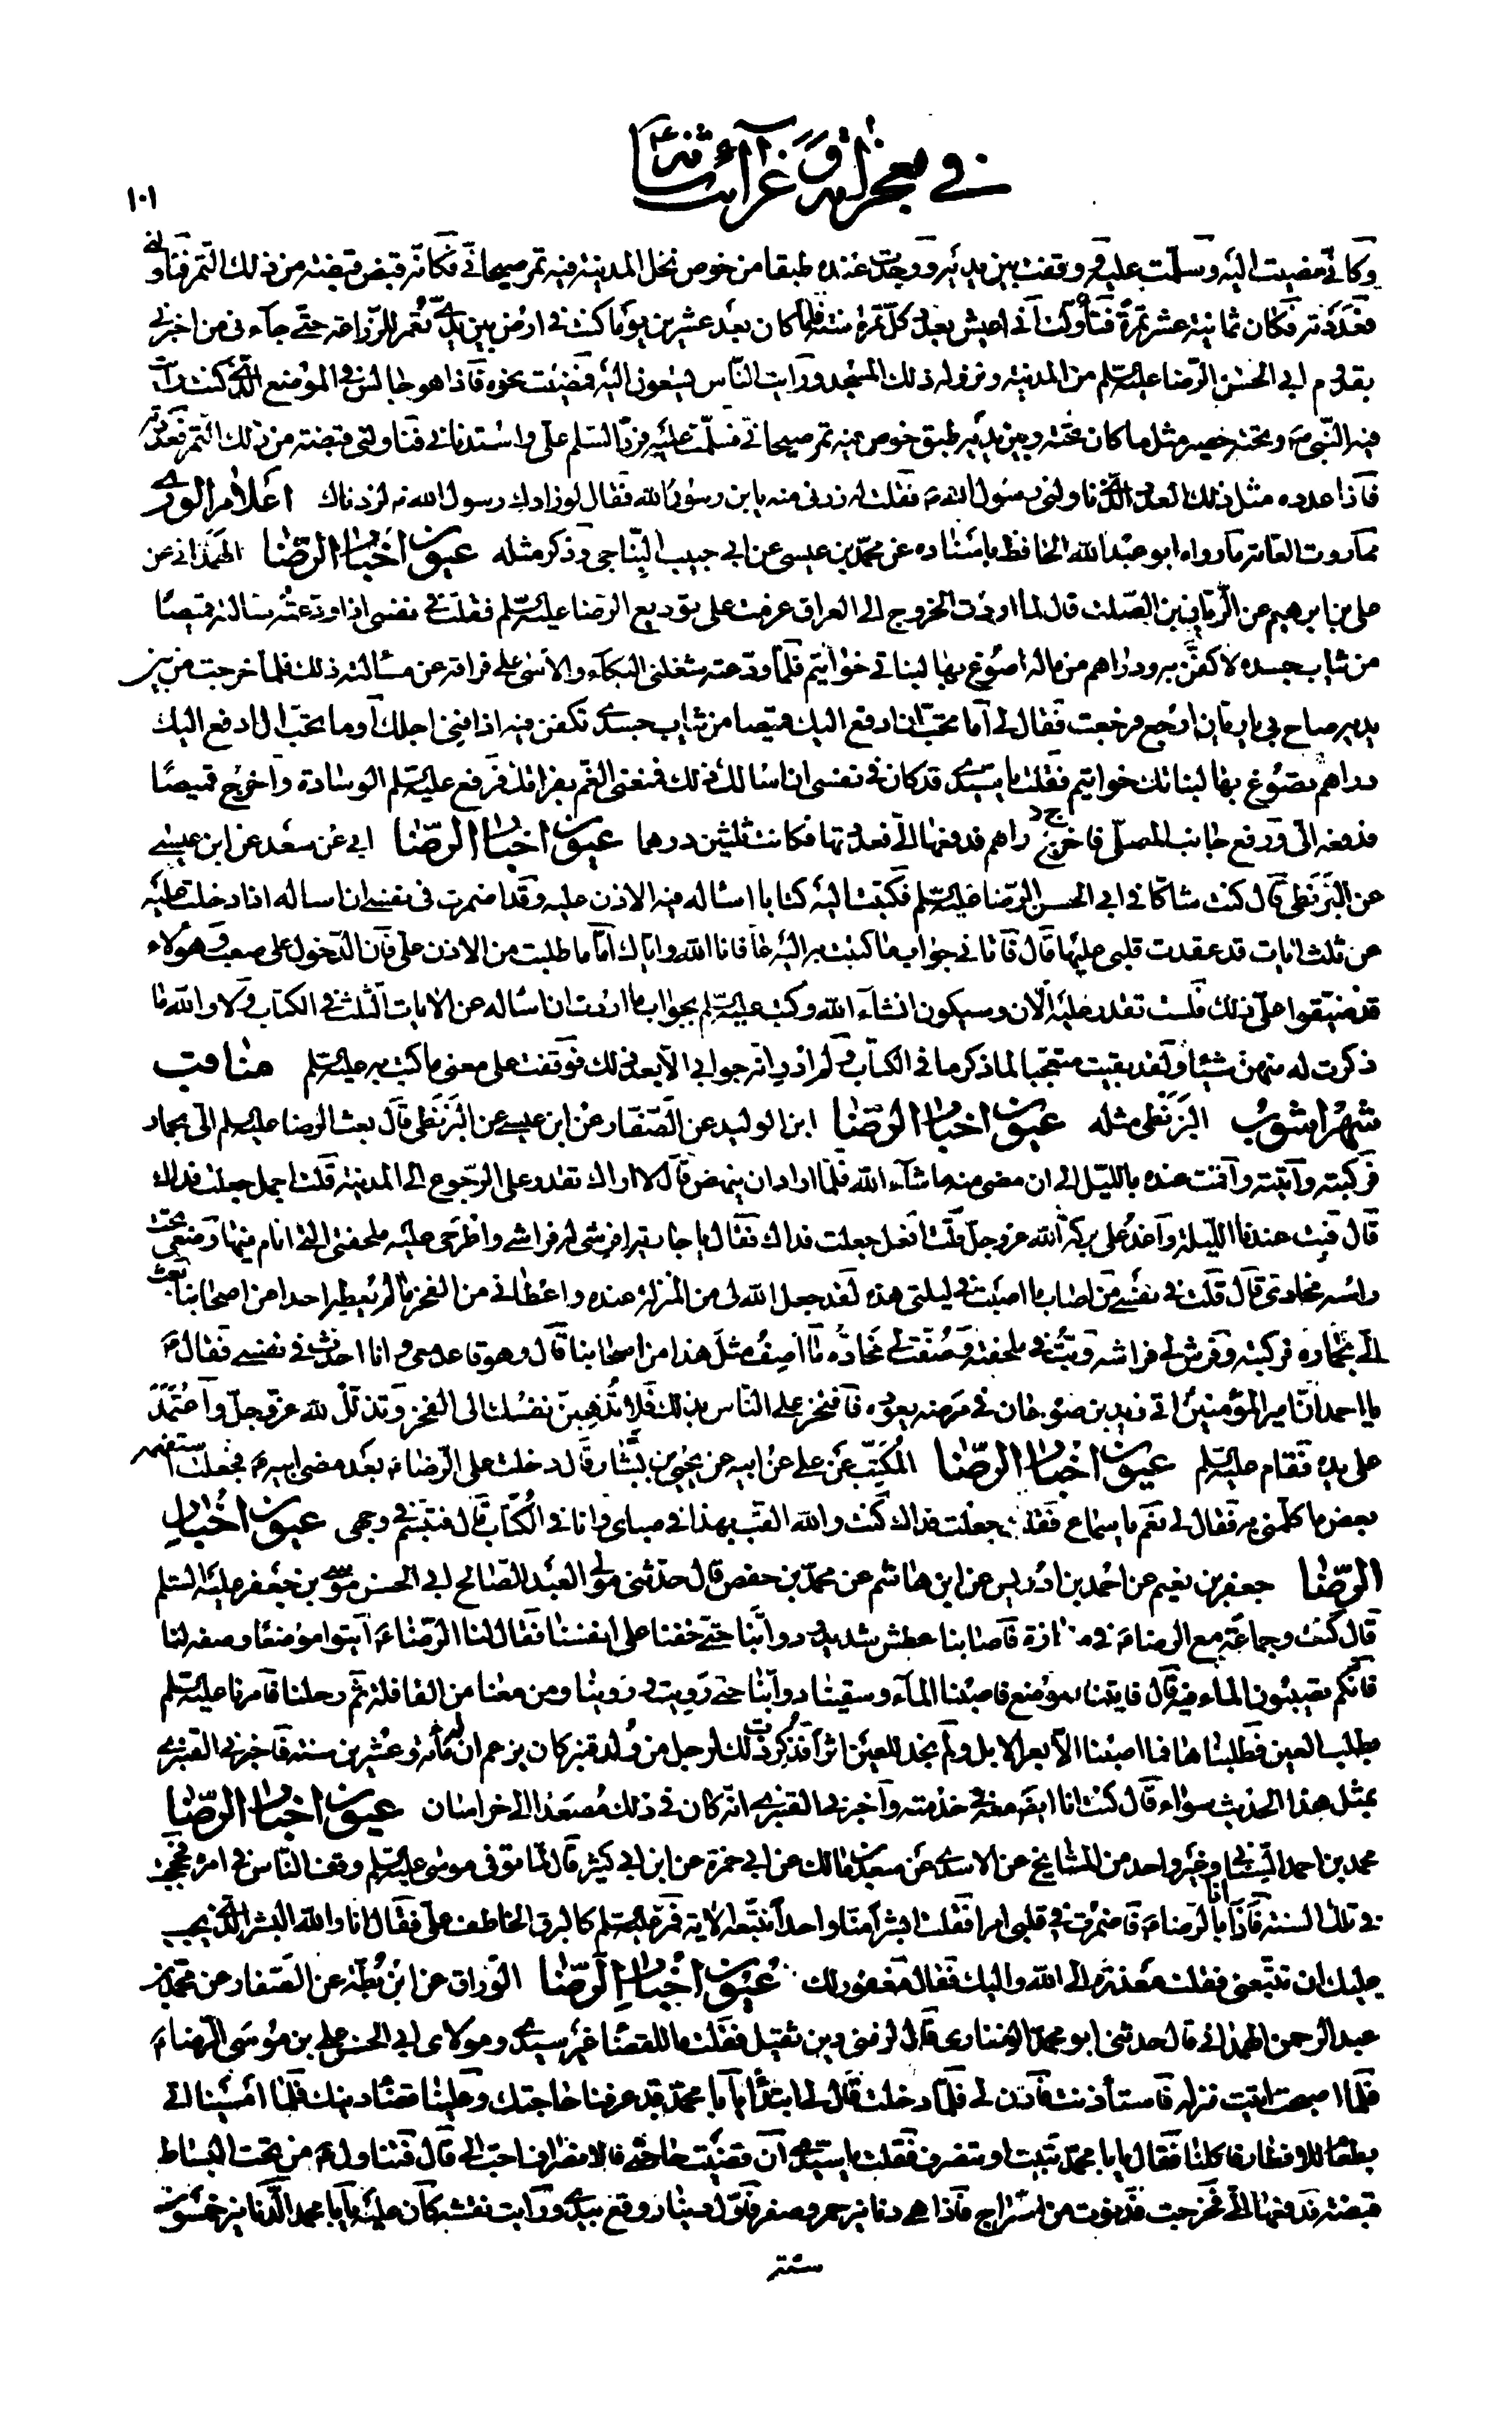 في معجزاته وغرائب شانه ع
١٠١
وكاني مضيت اليه وسلمت عليه ووقفت بين يديه ووجدت عنده طبقا من خوص نخل المدينة فيه تمر صيحاني فكانه قبض قبضة من ذلك التمر فناولني
فعددته فكان ثمانية عشر تمرة فتأولت اني اعيش بعدد كل تمرة سنة فلما كان بعد عشرين يوما كنت في ارض بين يدي تعمر للزراعة حتى جاءني من اخبرني
بقدوم ابي الحسن الرضا عليه السلم من المدينة ونزوله ذلك المسجد ورايت الناس يسعون اليه فمضيت نحوه فاذا هو جالس في الموضع الذي كنت رايت
فيه النبي ص وتحته حصير مثل ما كان تحته وبين يديه طبق خوص فيه تمر صيحاني فسلمت عليه فرد السلم علي واستدناني فناولني قبضة من ذلك التمر فعددته
فاذا عدده مثل ذلك العدد الذي ناولني رسول الله ص فقلت له زدني منه يا بن رسول الله فقال لو زادك رسول الله ص لزدناك اعلام الورى
مما روت العامة ما رواه ابو عبد الله الحافظ باسناده عن محمد بن عيسى عن ابي حبيب النباجي وذكر مثله عيون اخبار الرضا الهمداني عن
علي بن ابرهيم عن الريان بن الصلت قال لما اردت الخروج الى العراق عزمت على توديع الرضا عليه السلم فقلت في نفسي اذا ودعته سالته قميصا
من ثياب جسده لاكفن به ودراهم من ماله اصوغ بها لبناتي خواتيم فلما ودعته شغلني البكاء والاسى على فراقه عن مسالته ذلك فلما خرجت من بين
يديه صاح بي يا ريان ارجع فرجعت فقال لي اما تحب ان ادفع اليك قميصا من ثياب جسدي تكفن فيه اذا فني اجلك او ما تحب ان ادفع اليك
دراهم تصوغ بها لبناتك خواتيم فقلت يا سيدي قد كان في نفسي ان اسالك ذلك فمنعني الغم بفراقك فرفع عليه السلم الوسادة واخرج قميصا
فدفعه الي ورفع جانب المصلى فاخرج دراهم فدفعها الي فعددتها فكانت ثلثين درهما عيون اخبار الرضا ابي عن سعد عن ابن عيسى
عن البزنطي قال كنت شاكا في ابي الحسن الرضا عليه السلم فكتبت اليه كتابا اساله فيه الاذن عليه وقد اضمرت في نفسي ان اساله اذا دخلت عليه
عن ثلث ايات قد عقدت قلبي عليها قال فاتاني جواب ما كتبت به اليه عافانا الله واياك اما ما طلبت من الاذن علي فان الدخول علي صعب وهؤلاء
قد ضيقوا علي ذلك فلست تقدر عليه الان وسيكون انشاء الله وكتب عليه السلم بجواب ما اردت ان اساله عن الايات الثلث في الكتاب ولا والله ما
ذكرت له منهن شيئا ولقد بقيت متعجبا لما ذكرها في الكتاب ولم ادر انه جوابي الا بعد ذلك فوقفت على معنى ما كتب به عليه السلم مناقب
شهراشوب البزنطي مثله عيون اخبار الرضا ابن الوليد عن الصفار عن ابن عيسى عن البزنطي قال بعث الرضا عليه السلم الي بحمار
فركبته واتيته واقمت عنده بالليل الى ان مضى منه ما شاء الله فلما اراد ان ينهض قال لا اراك تقدر على الرجوع الى المدينة قلت اجل جعلت فداك
قال فبت عندنا الليلة واغد على بركة الله عز وجل قلت افعل جعلت فداك فقال يا جارية افرشي له فراشي واطرحي عليه ملحفتي التي انام فيها وضعي تحت
راسه مخادي قال قلت في نفسي من اصاب ما اصبت في ليلتي هذه لقد جعل الله لي من المنزلة عنده واعطاني من الفخر ما لم يعطه احدا من اصحابنا بعث
الي بحماره فركبته وفرش لي فراشه وبت في ملحفته ووضعت لي مخاده ما اصيب مثل هذا من اصحابنا قال وهو قاعد معي وانا احدث في نفسي فقال ع
يا احمد ان امير المؤمنين ع اتى زيد بن صوحان في مرضه يعوده فافتخر على الناس بذلك فلا تذهبن نفسك الى الفخر وتذلل لله عز وجل واعتمد
على يده فقام عليه السلم عيون اخبار الرضا المكتب عن علي عن ابيه عن يحيى بن بشار قال دخلت على الرضا ع بعد مضي ابيه ع فجعلت استفهمه
بعض ما كلمني به فقال لي نعم يا سماع فقلت جعلت فداك كنت والله القب بهذا في صباي وانا في الكتاب قال فتبسم في وجهي عيون اخبار
الرضا جعفر بن نعيم عن احمد بن ادريس عن ابن هاشم عن محمد بن حفص قال حدثني مولى العبد الصالح ابي الحسن موسى بن جعفر عليه السلم
قال كنت وجماعة مع الرضا ع في مفازة فاصابنا عطش شديد ودوابنا حتى خفنا على انفسنا فقال لنا الرضا ع ايتوا موضعا وصفه لنا
فانكم تصيبون الماء فيه قال فاتينا الموضع فاصبنا الماء وسقينا دوابنا حتى رويت وروينا ومن معنا من القافلة ثم رحلنا فامرنا عليه السلم
بطلب العين فطلبناها فما اصبنا الا بعر الابل ولم نجد للعين اثرا فذكرت ذلك لرجل من ولد قنبر كان يزعم ان له مائة وعشرين سنة فاخبرني القنبري
بمثل هذا الحديث سواء قال كنت انا ايضا معه في خدمته واخبرني القنبري انه كان في ذلك مصعدا الى خراسان عيون اخبار الرضا
محمد بن احمد السناني وغير واحد من المشايخ عن الاسدي عن سعد بن مالك عن ابي حمزة عن ابن ابي كثير قال لما توفي موسى عليه السلم وقف الناس في امره فحججت
في تلك السنة فاذا انا بالرضا ع فاضمرت في قلبي امرا فقلت ابشرا منا واحدا نتبعه الاية فمر عليه السلم كالبرق الخاطف علي فقال انا والله البشر الذي يجب
عليك ان تتبعني فقلت معذرة الى الله واليك فقال مغفور لك عيون اخبار الرضا الوراق عن ابن بطة عن الصفار عن محمد بن
عبد الرحمن الهمداني قال حدثني ابو محمد الغفاري قال لزمني دين ثقيل فقلت ما للقضاء غير سيدي ومولاي ابي الحسن علي بن موسى الرضا ع
فلما اصبحت اتيت منزله فاستأذنت فاذن لي فلما دخلت قال لي ابتداء يا با محمد قد عرفنا حاجتك وعلينا قضاء دينك فلما امسينا اتي
بطعام للافطار فاكلنا فقال يا با محمد تبيت او تنصرف فقلت يا سيدي ان قضيت حاجتي فالانصراف احب الي قال فتناول ع من تحت البساط
قبضة فدفعها الي فخرجت فدنوت من السراج فاذا هي دنانير حمر وصفر فاول دينار وقع بيدي ورايت نقشه كان عليه يا با محمد الدنانير خمسون
ستة